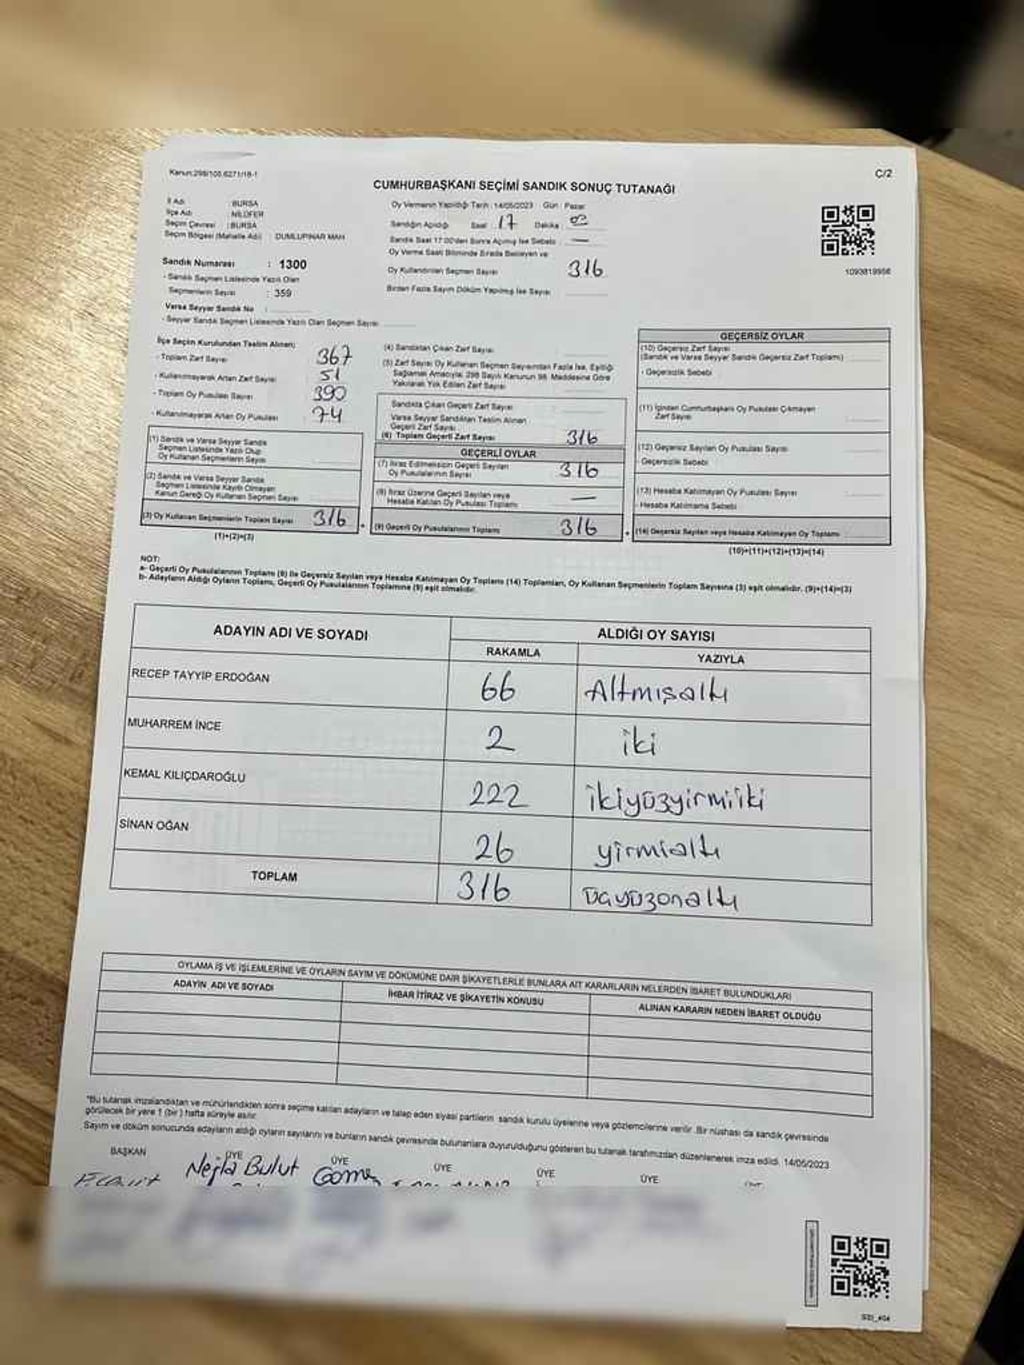 Kanun:298/105,6271/18-1
C/2
CUMHURBAŞKANI SEÇİMİ SANDIK SONUÇ TUTANAĞI
İl Adı : BURSA
İlçe Adı : NİLÜFER
Seçim Çevresi : BURSA
Seçim Bölgesi (Mahalle Adı) : DUMLUPINAR MAH
Sandık Numarası : 1300
- Sandık Seçmen Listesinde Yazılı Olan
Seçmenlerin Sayısı : 359
Varsa Seyyar Sandık No :
- Seyyar Sandık Seçmen Listesinde Yazılı Olan Seçmen Sayısı
Oy Vermenin Yapıldığı Tarih :14/05/2023 Gün : Pazar
Sandığın Açıldığı Saat : 17 Dakika :
Sandık Saat 17:00'den Sonra Açılmış İse Sebebi : —
Oy Verme Saati Bitiminde Sırada Bekleyen ve
Oy Kullandırılan Seçmen Sayısı 316
Birden Fazla Sayım Döküm Yapılmış İse Sayısı
1093819956
İlçe Seçim Kurulundan Teslim Alınan;
- Toplam Zarf Sayısı 367
- Kullanılmayarak Artan Zarf Sayısı 51
- Toplam Oy Pusulası Sayısı 390
- Kullanılmayarak Artan Oy Pusulası 74
(1) Sandık ve Varsa Seyyar Sandık
Seçmen Listesinde Yazılı Olup
Oy Kullanan Seçmenlerin Sayısı
(2) Sandık ve Varsa Seyyar Sandık
Seçmen Listesinde Kayıtlı Olmayan
Kanun Gereği Oy Kullanan Seçmen Sayısı
(3) Oy Kullanan Seçmenlerin Toplam Sayısı 316
(1)+(2)=(3)
(4) Sandıktan Çıkan Zarf Sayısı
(5) Zarf Sayısı Oy Kullanan Seçmen Sayısından Fazla İse, Eşitliği
Sağlamak Amacıyla; 298 Sayılı Kanunun 98. Maddesine Göre
Yakılarak Yok Edilen Zarf Sayısı
Sandıkta Çıkan Geçerli Zarf Sayısı
Varsa Seyyar Sandıktan Teslim Alınan
Geçerli Zarf Sayısı
(6) Toplam Geçerli Zarf Sayısı 316
GEÇERLİ OYLAR
(7) İtiraz Edilmeksizin Geçerli Sayılan
Oy Pusulalarının Sayısı 316
(8) İtiraz Üzerine Geçerli Sayılan veya
Hesaba Katılan Oy Pusulası Toplamı —
(9) Geçerli Oy Pusulalarının Toplamı 316
GEÇERSİZ OYLAR
(10) Geçersiz Zarf Sayısı
(Sandık ve Varsa Seyyar Sandık Geçersiz Zarf Toplamı)
- Geçersizlik Sebebi
(11) İçinden Cumhurbaşkanı Oy Pusulası Çıkmayan
Zarf Sayısı
(12) Geçersiz Sayılan Oy Pusulası Sayısı
- Geçersizlik Sebebi
(13) Hesaba Katılmayan Oy Pusulası Sayısı
- Hesaba Katılmama Sebebi
(14) Geçersiz Sayılan veya Hesaba Katılmayan Oy Toplamı
(10)+(11)+(12)+(13)=(14)
NOT:
a- Geçerli Oy Pusulalarının Toplamı (9) ile Geçersiz Sayılan veya Hesaba Katılmayan Oy Toplamı (14) Toplamları, Oy Kullanan Seçmenlerin Toplam Sayısına (3) eşit olmalıdır. (9)+(14)=(3)
b- Adayların Aldığı Oyların Toplamı, Geçerli Oy Pusulalarının Toplamına (9) eşit olmalıdır.
ADAYIN ADI VE SOYADI
ALDIĞI OY SAYISI
RAKAMLA YAZIYLA
RECEP TAYYİP ERDOĞAN 66 Altmışaltı
MUHARREM İNCE 2 iki
KEMAL KILIÇDAROĞLU 222 ikiyüzyirmiiki
SİNAN OĞAN 26 yirmialtı
TOPLAM 316 üçyüzonaltı
OYLAMA İŞ VE İŞLEMLERİNE VE OYLARIN SAYIM VE DÖKÜMÜNE DAİR ŞİKAYETLERLE BUNLARA AİT KARARLARIN NELERDEN İBARET BULUNDUKLARI
ADAYIN ADI VE SOYADI
İHBAR İTİRAZ VE ŞİKAYETİN KONUSU
ALINAN KARARIN NEDEN İBARET OLDUĞU
*Bu tutanak imzalandıktan ve mühürlendikten sonra seçime katılan adayların ve talep eden siyasi partilerin sandık kurulu üyelerine veya gözlemcilerine verilir. Bir nüshası da sandık çevresinde
görülecek bir yere 1 (bir) hafta süreyle asılır.
Sayım ve döküm sonucunda adayların aldığı oyların sayılarını ve bunların sandık çevresinde bulunanlara duyurulduğunu gösteren bu tutanak tarafımızdan düzenlenerek imza edildi. 14/05/2023
BAŞKAN ÜYE ÜYE ÜYE ÜYE ÜYE
Nejla Bulut